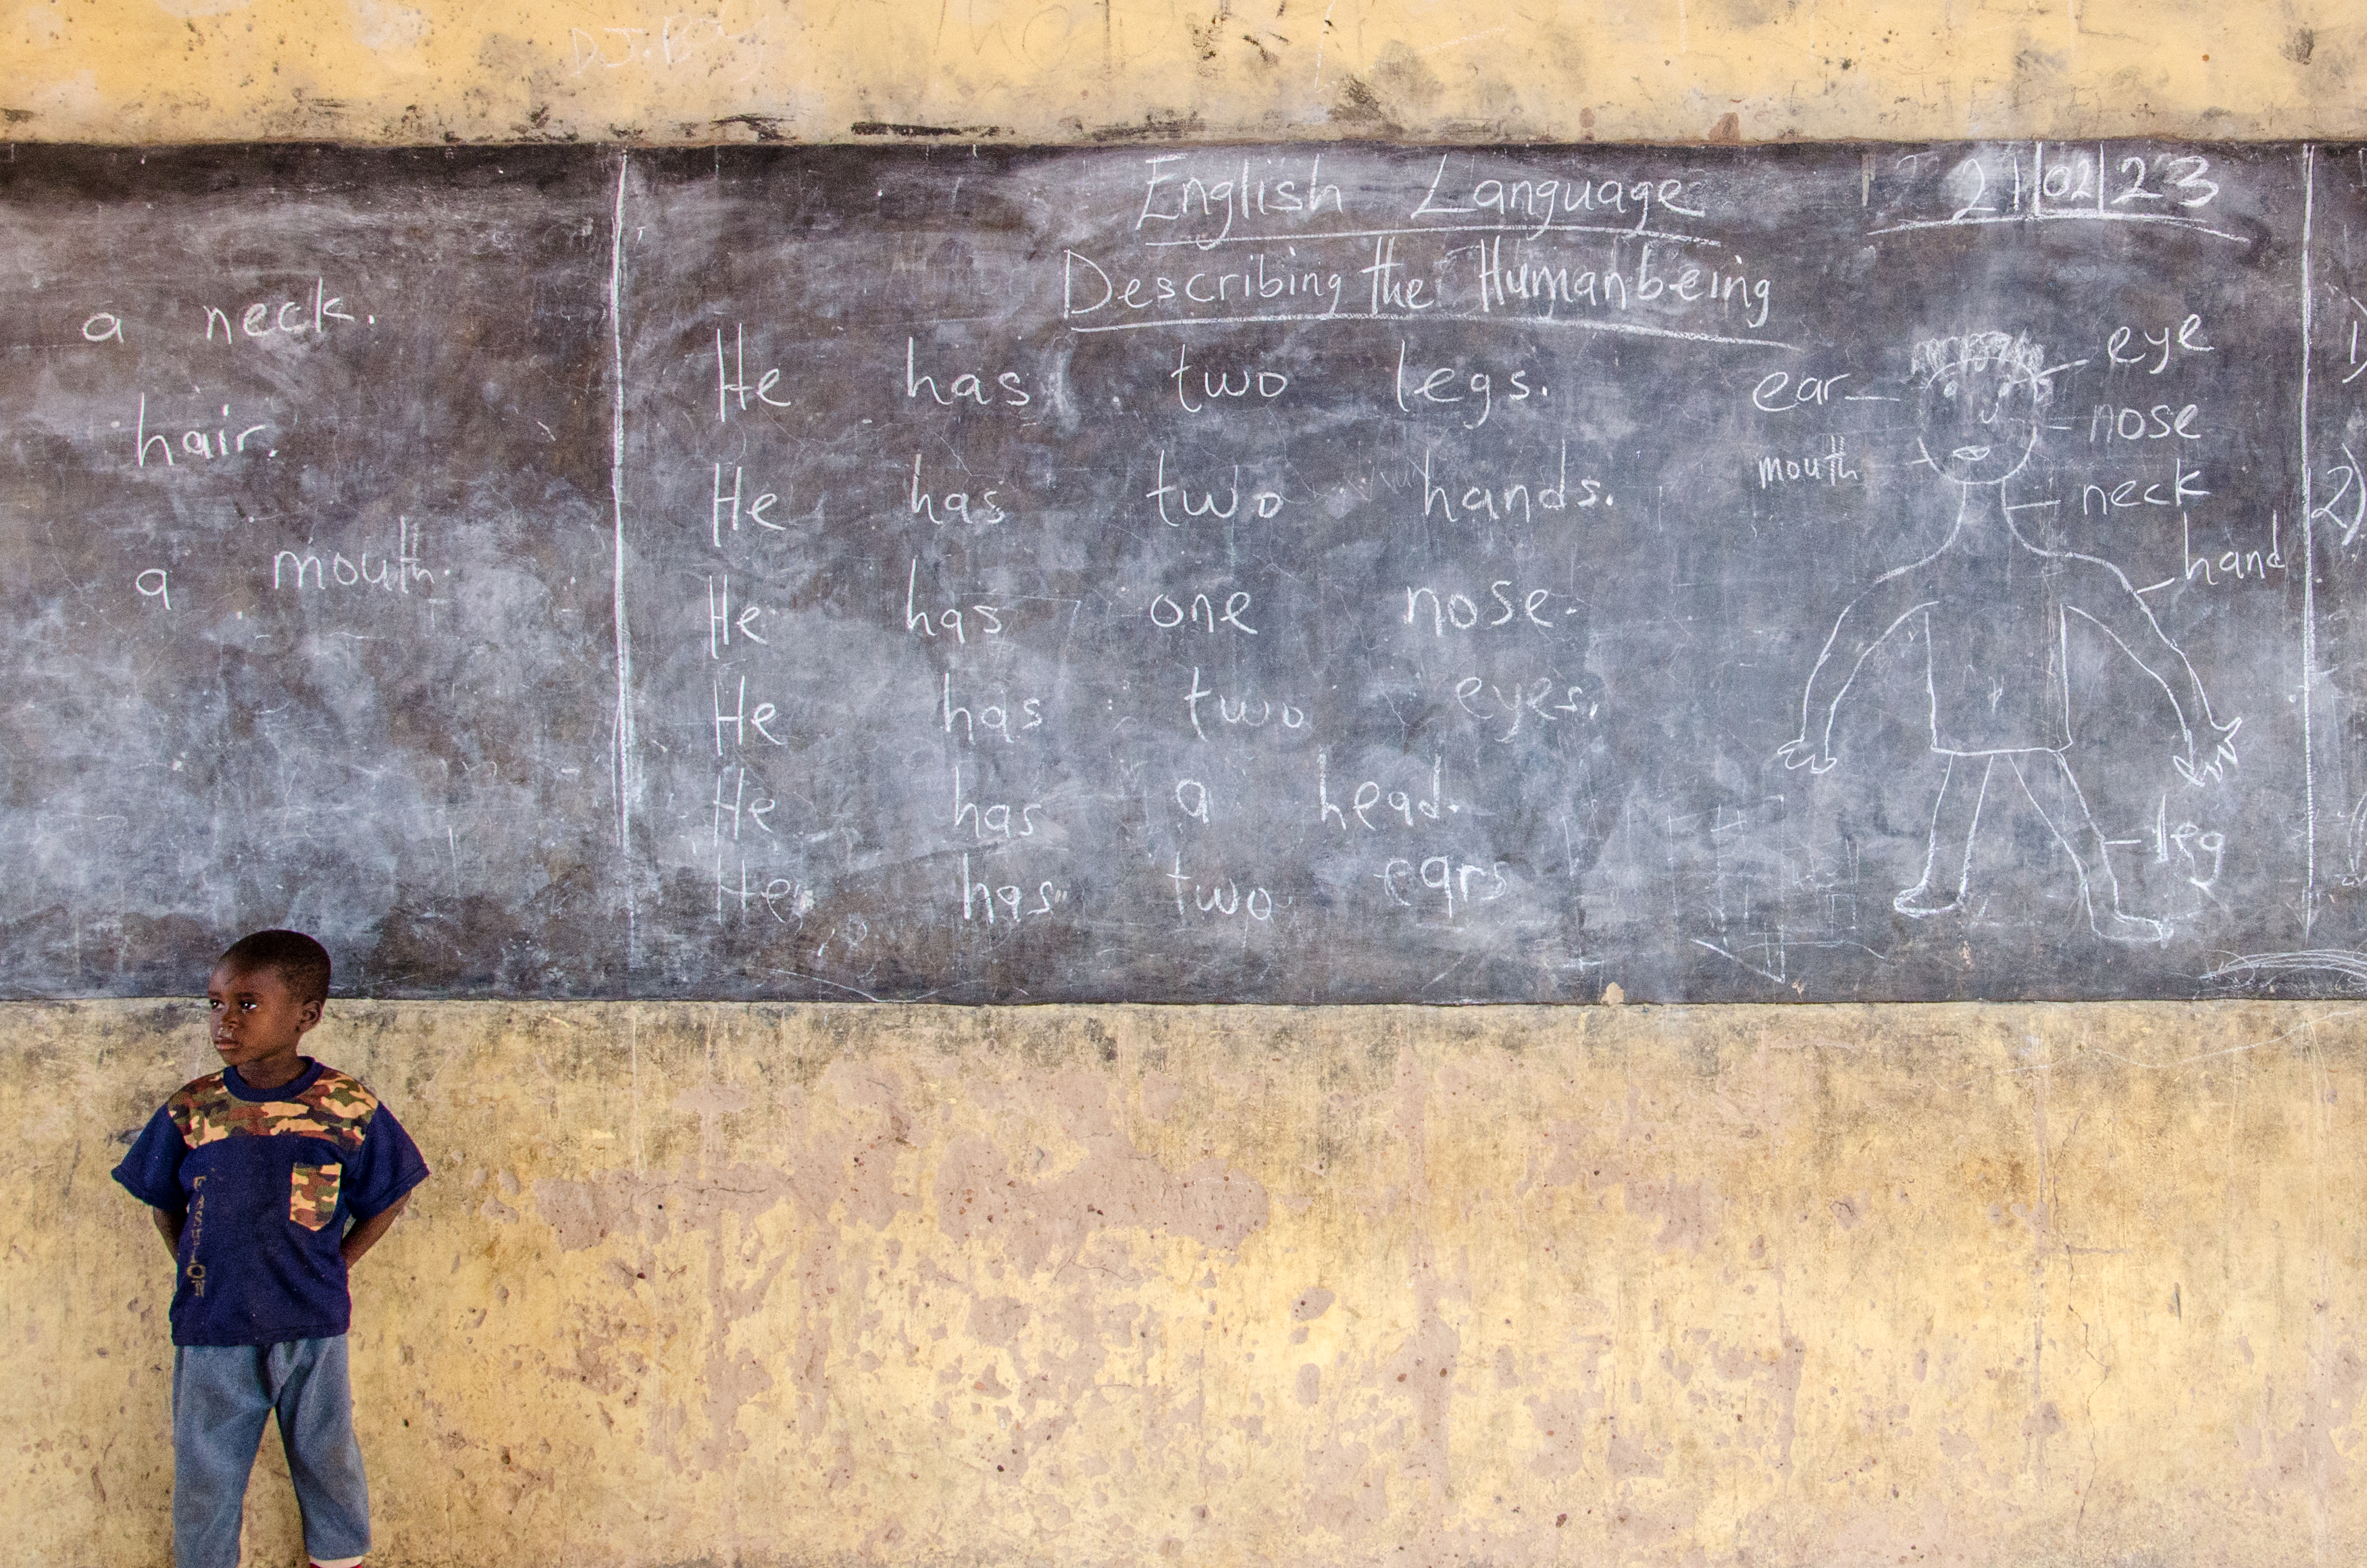 a neck.
hair.
a mouth.
English Language
21/02/23
Describing the Humanbeing
He has two legs.
He has two hands.
He has one nose.
He has two eyes.
He has a head.
He has two ears
ear
mouth
eye
nose
neck
hand
leg
1)
2)
FASHION